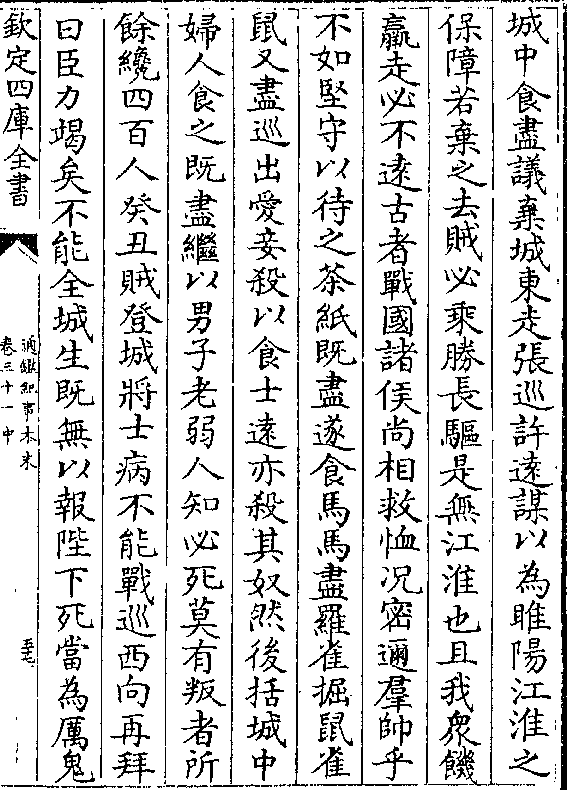 城中食盡議棄城東走張巡許遠謀以為睢陽江淮之
保障若棄之去賊必乘勝長驅是無江淮也且我衆饑
羸走必不逺古者戰國諸侯尚相救恤况密邇羣帥乎
不如堅守以待之茶紙既盡遂食馬馬盡羅雀掘鼠雀
鼠又盡巡出愛妾殺以食士遠亦殺其奴然後括城中
婦人食之既盡繼以男子老弱人知必死莫有叛者所
餘纔四百人癸丑賊登城將士病不能戰巡西向再拜
曰臣力竭矣不能全城生既無以報陛下死當為厲鬼
欽定四庫全書
通鑑紀事本末
卷三十一中